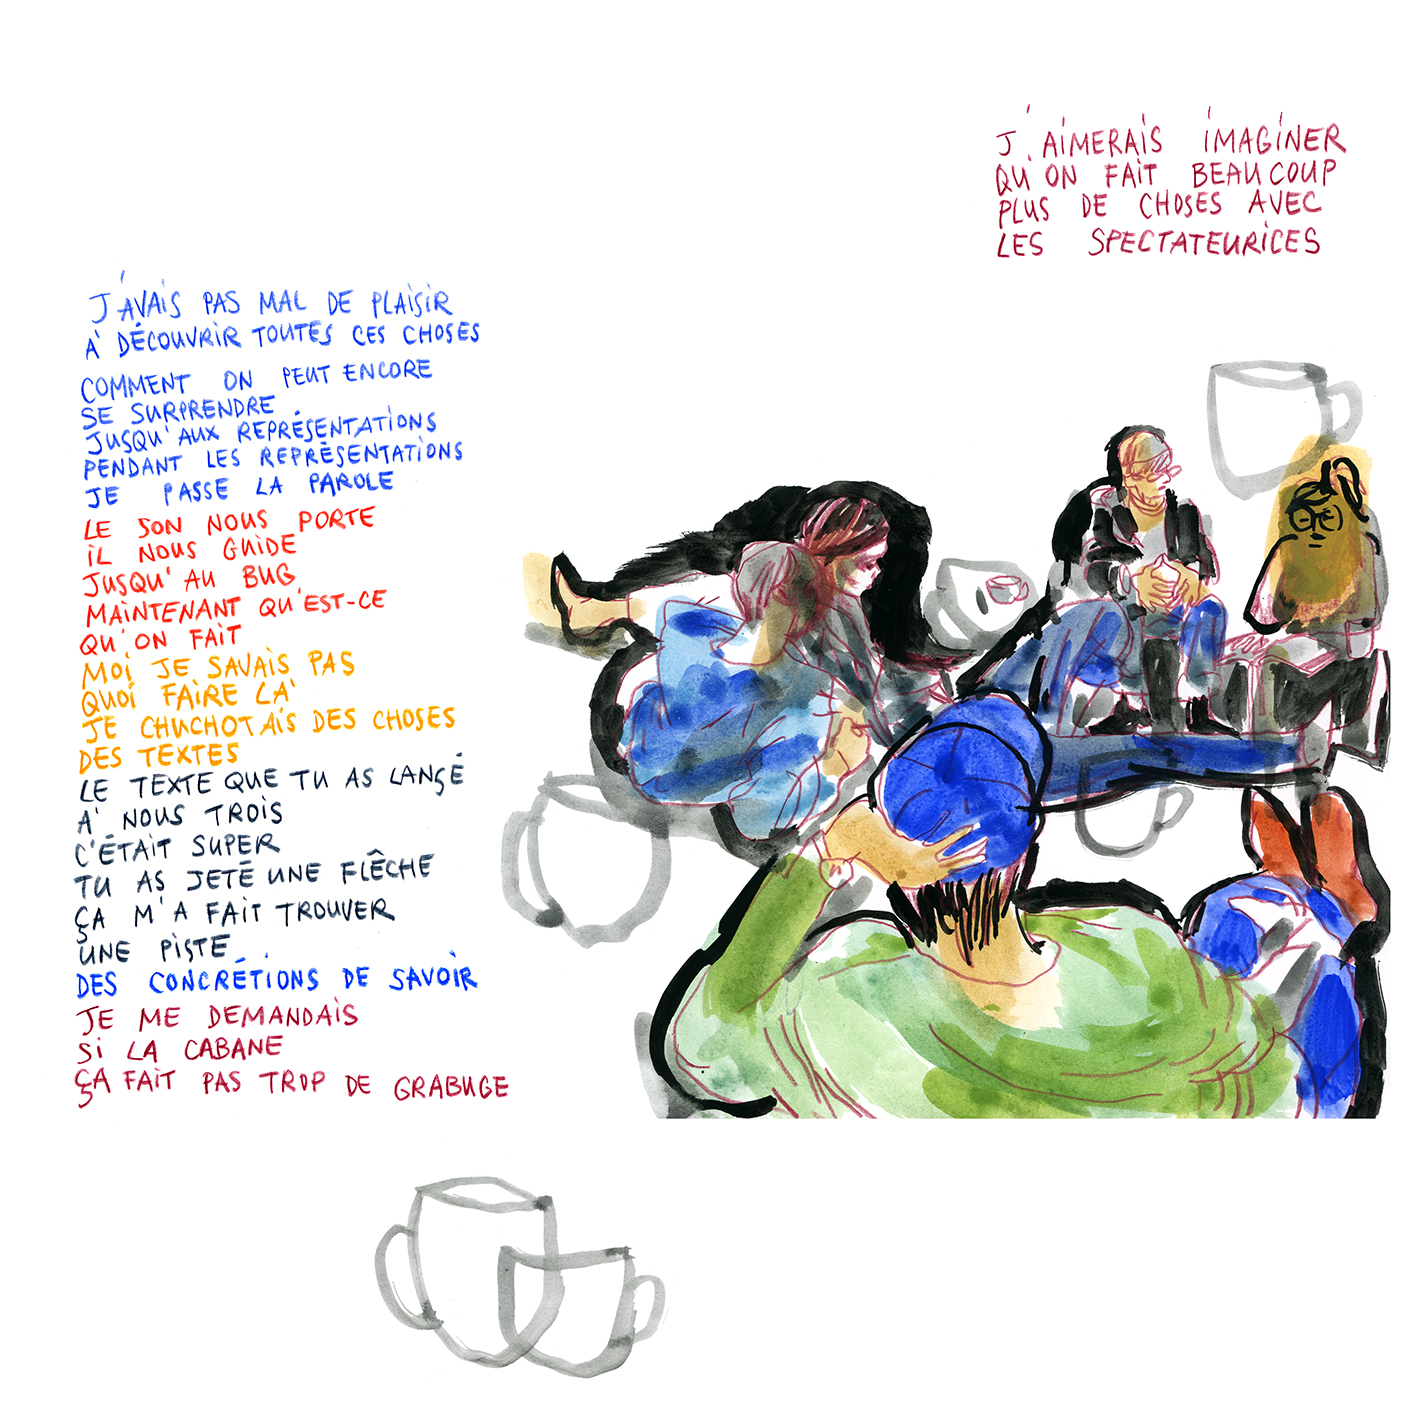 J'AIMERAIS IMAGINER
QU'ON FAIT BEAUCOUP
PLUS DE CHOSES AVEC
LES SPECTATEURICES
J'AVAIS PAS MAL DE PLAISIR
À DÉCOUVRIR TOUTES CES CHOSES
COMMENT ON PEUT ENCORE
SE SURPRENDRE
JUSQU'AUX REPRÉSENTATIONS
PENDANT LES REPRÉSENTATIONS
JE PASSE LA PAROLE
LE SON NOUS PORTE
IL NOUS GUIDE
JUSQU'AU BUG
MAINTENANT QU'EST-CE
QU'ON FAIT
MOI JE SAVAIS PAS
QUOI FAIRE LÀ
JE CHUCHOTAIS DES CHOSES
DES TEXTES
LE TEXTE QUE TU AS LANÇÉ
À NOUS TROIS
C'ÉTAIT SUPER
TU AS JETÉ UNE FLÊCHE
ÇA M'A FAIT TROUVER
UNE PISTE
DES CONCRÉTIONS DE SAVOIR
JE ME DEMANDAIS
SI LA CABANE
ÇA FAIT PAS TROP DE GRABUGE